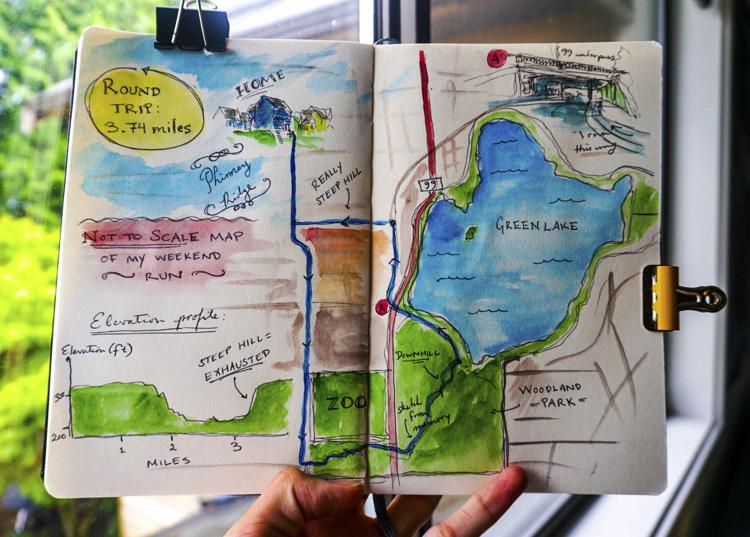 ROUND
TRIP:
3.74 miles
HOME
Phinney
Ridge
REALLY
STEEP HILL
NOT TO SCALE MAP
OF MY WEEKEND
RUN
Elevation profile:
Elevation (ft)
STEEP HILL =
EXHAUSTED
1
2
3
MILES
ZOO
A
99 underpass
I run
this way
99
GREEN LAKE
A
DOWNHILL
sketch
from
memory
WOODLAND
=PARK=